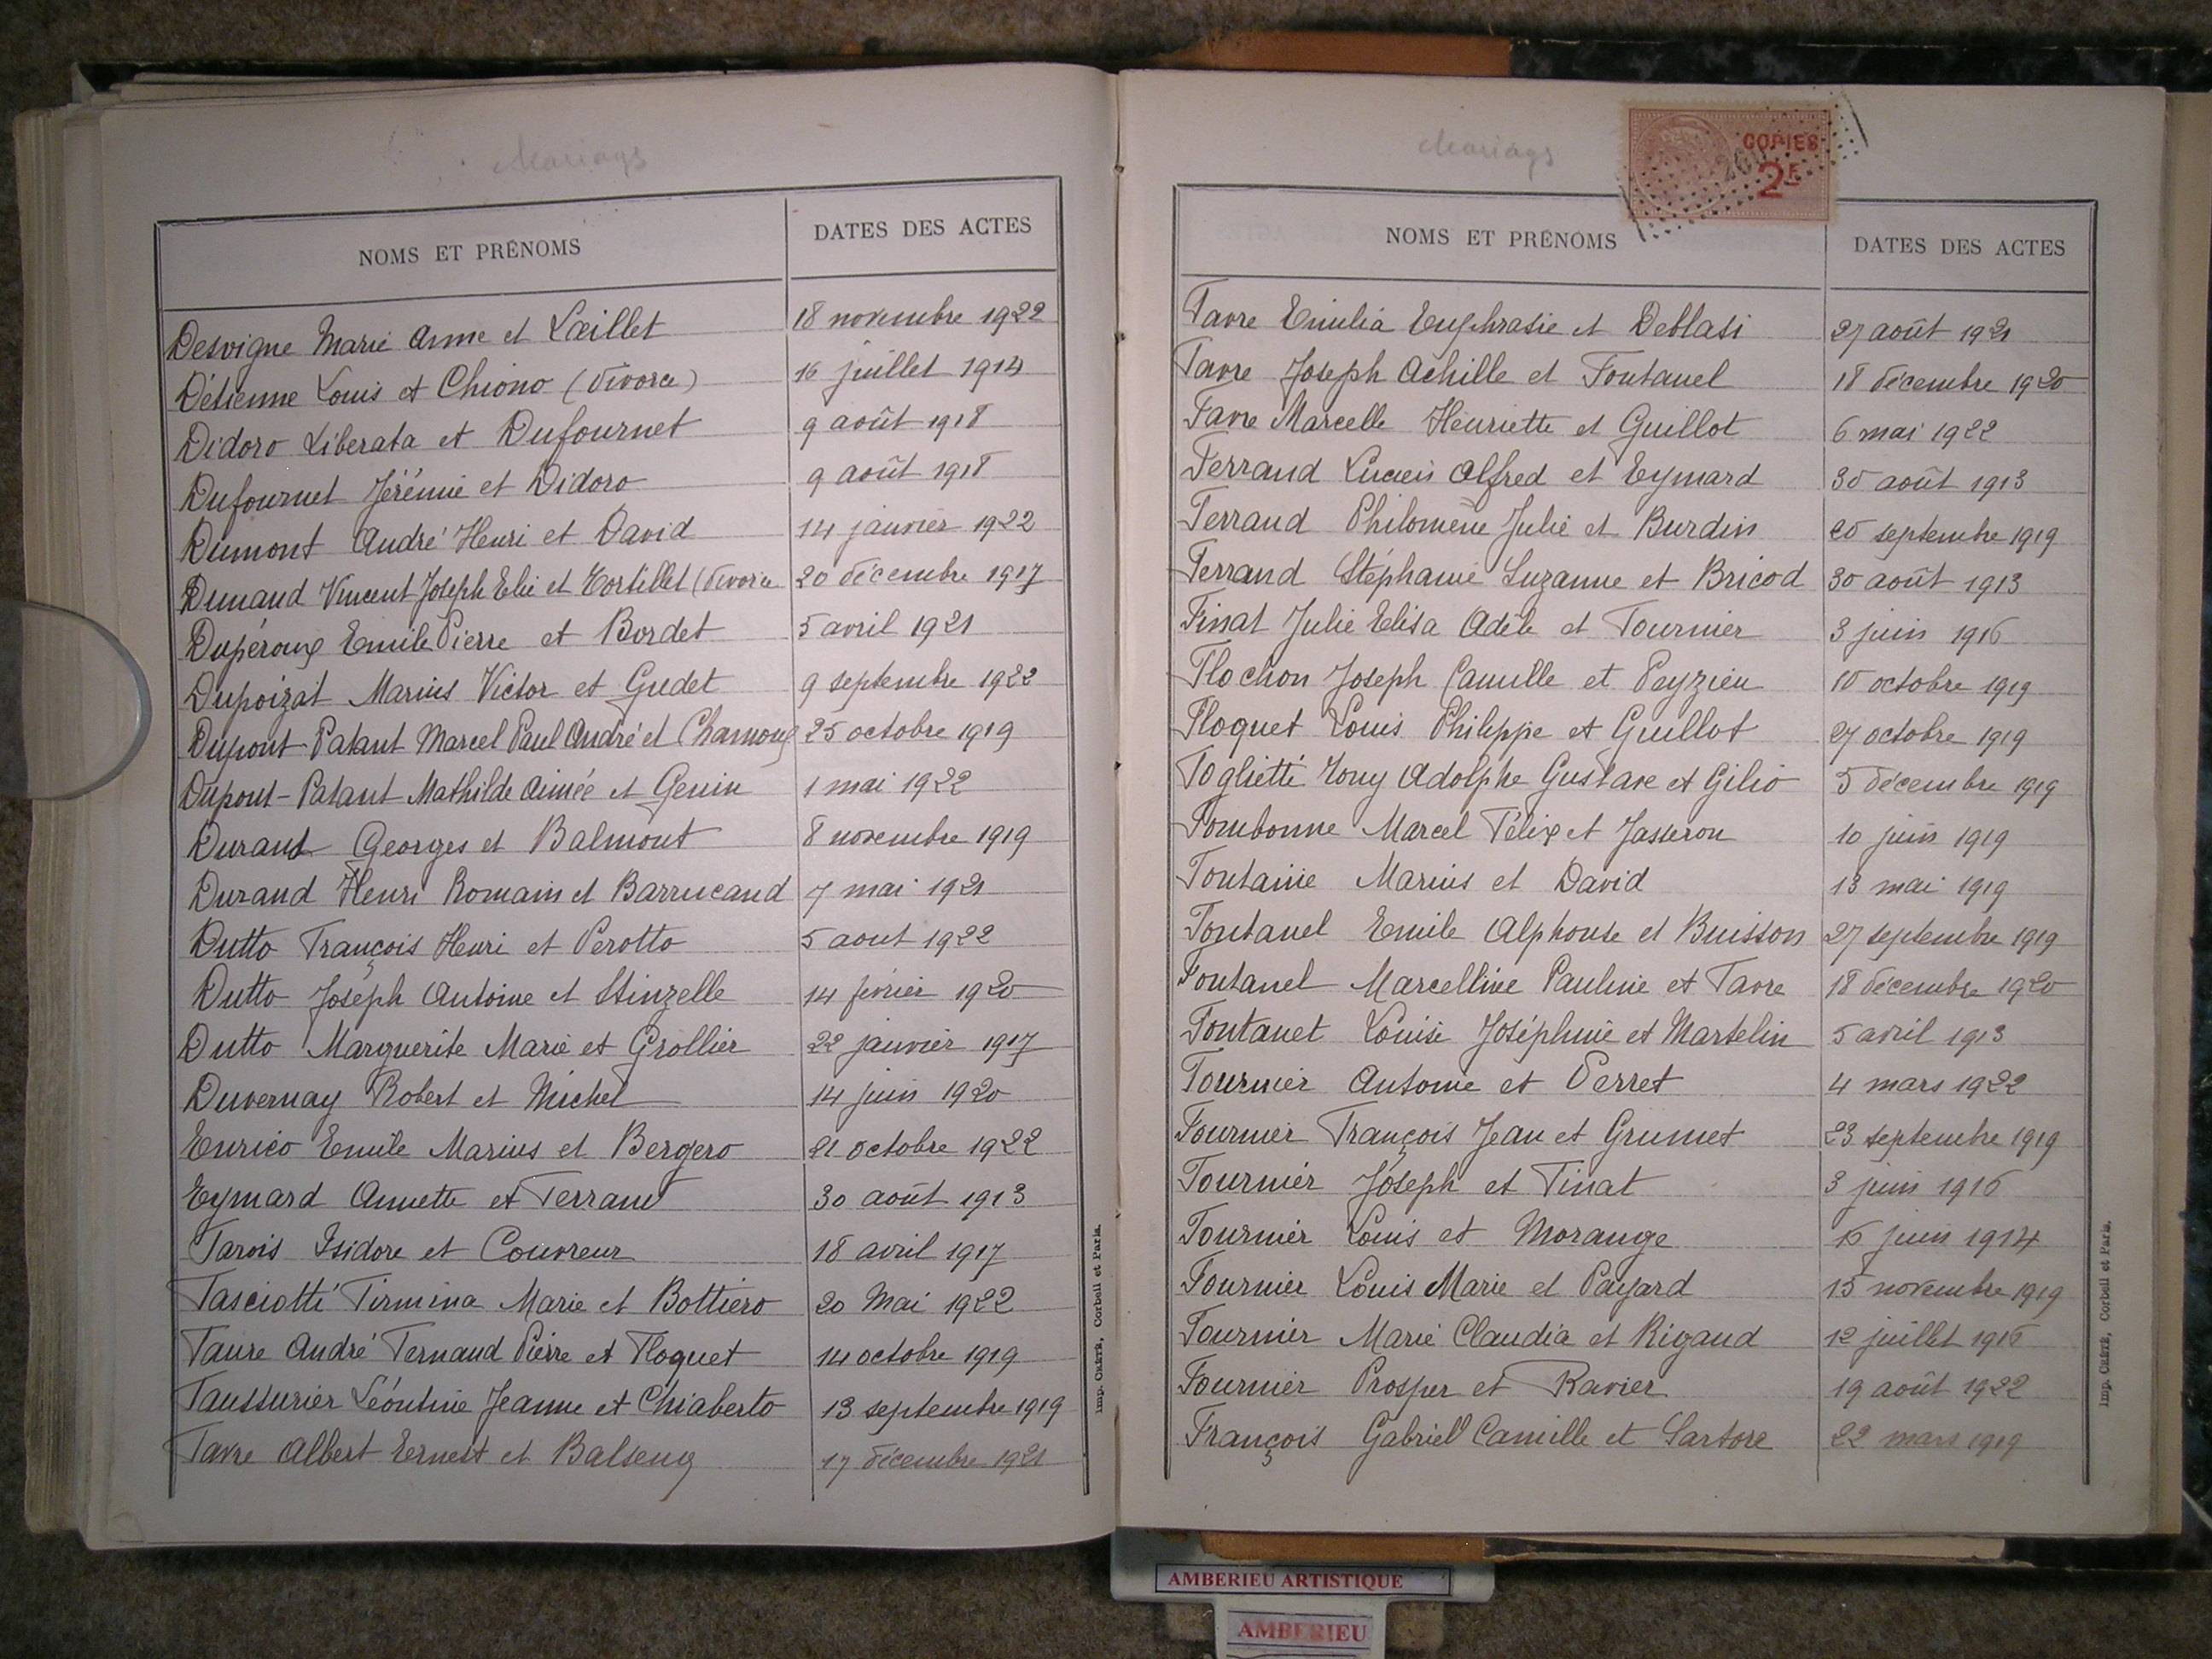 Mariages
NOMS ET PRÉNOMS DATES DES ACTES
Desvigne Marie Anne et Laillet 18 novembre 1922
Détienne Louis et Chiono (Divorce) 16 juillet 1914
Didoro Liberata et Dufournet 9 août 1918
Dufournet Jérémie et Didoro 9 août 1918
Dumont André Henri et David 14 janvier 1922
Dunand Vincent Joseph Elie et Tortillet (Divorce 20 décembre 1917
Dupéroux Emile Pierre et Bordet 5 avril 1921
Dupoizat Marius Victor et Gudet 9 septembre 1922
Dupont-Patant Marcel Paul André et Chamoux 25 octobre 1919
Dupont-Patant Mathilde Aimée et Genin 1 mai 1922
Durand Georges et Balmont 8 novembre 1919
Durand Henri Romain et Barrucand 7 mai 1921
Dutto François Henri et Perotto 5 aout 1922
Dutto Joseph Antoine et Stinzelle 14 février 1920
Dutto Marguerite Marie et Grollier 22 janvier 1917
Duvernay Robert et Michel 14 juin 1920
Enrico Emile Marius et Bergero 21 octobre 1922
Eymard Annette et Ferrand 30 août 1913
Farois Isidore et Couvreur 18 avril 1917
Fasciotti Firmina Marie et Bottiero 20 Mai 1922
Faure André Fernand Pierre et Floquet 14 octobre 1919
Faussurier Léontine Jeanne et Chiaberto 13 septembre 1919
Favre Albert Ernest et Balseng 17 décembre 1921
Imp. CRÉTÉ, Corbeil et Paris.
Mariages
COPIES
2F
NOMS ET PRÉNOMS DATES DES ACTES
Favre Emilia Euphrasie et Deblasi 27 août 1921
Favre Joseph Achille et Fontanel 18 décembre 1920
Favre Marcelle Henriette et Guillot 6 mai 1922
Ferrand Lucien Alfred et Eymard 30 août 1913
Ferrand Philomène Julie et Burdin 20 septembre 1919
Ferrand Stéphanie Suzanne et Bricod 30 août 1913
Finat Julie Elisa Adèle et Fournier 3 juin 1916
Flochon Joseph Camille et Peyzieu 10 octobre 1919
Floquet Louis Philippe et Guillot 27 octobre 1919
Foglietti Tony Adolphe Gustave et Gilio 5 décembre 1919
Fombonne Marcel Félix et Jasseron 10 juin 1919
Fontaine Marius et David 13 mai 1919
Fontanel Emile Alphonse et Buisson 27 septembre 1919
Fontanel Marcelline Pauline et Favre 18 décembre 1920
Fontanet Louise Joséphine et Martelin 5 avril 1913
Fournier Antoine et Perret 4 mars 1922
Fournier François Jean et Grumet 23 septembre 1919
Fournier Joseph et Finat 3 juin 1916
Fournier Louis et Morange 16 juin 1914
Fournier Louis Marie et Payard 15 novembre 1919
Fournier Marie Claudia et Rigaud 12 juillet 1916
Fournier Prosper et Ravier 19 août 1922
François Gabriel Camille et Sartore 22 mars 1919
Imp. CRÉTÉ, Corbeil et Paris.
AMBERIEU ARTISTIQUE
AMBERIEU